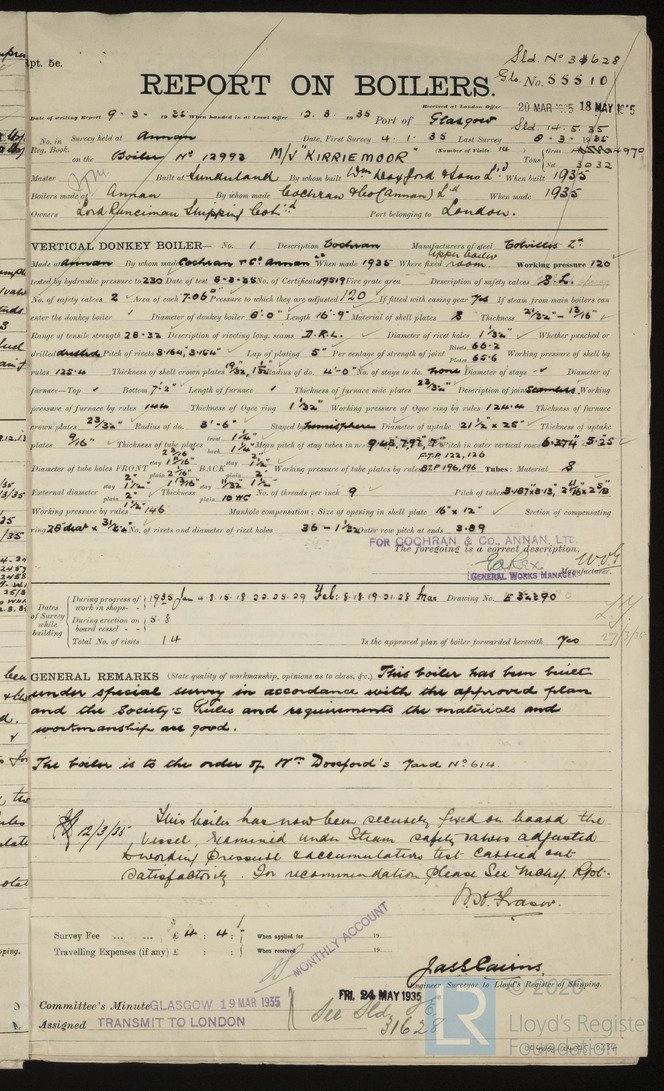 Rpt. 5e.
Sld. No 31628
Gls. No. 55510
REPORT ON BOILERS.
Received at London Office 20 MAR 1935 18 MAY 1935
Date of writing Report 9-3- 1935 When handed in at Local Office 12.3.1935 Port of Glasgow Sld. 14.5.35
No. in Survey held at Annan Date, First Survey 4-1-35 Last Survey 8-3-1935
Reg. Book. on the Boiler No 12993 M/V "KIRRIEMOOR" (Number of Visits 14) Tons Gross 4970 Net 3032
Master Built at Sunderland By whom built Wm Doxford & Sons Ld When built 1935
Boilers made at Annan By whom made Cochran & Co (Annan) Ld When made 1935
Owners Lord Runciman Shipping Co Ltd Port belonging to London.
VERTICAL DONKEY BOILER— No. 1 Description Cochran Manufacturers of steel Colvilles Ld
Made at Annan By whom made Cochran & Co Annan Ld When made 1935 Where fixed Upper boiler room. Working pressure 120
tested by hydraulic pressure to 230 Date of test 8-3-35 No. of Certificate 19519 Fire grate area - Description of safety valves S.L. Spring
No. of safety valves 2 Area of each 7.06" Pressure to which they are adjusted 120 If fitted with easing gear Yes If steam from main boilers can
enter the donkey boiler Diameter of donkey boiler 8'-0" Length 16'-9" Material of shell plates S Thickness 21/32" - 13/16"
Range of tensile strength 28-32 Description of riveting long. seams D.R.L. Diameter of rivet holes 1 1/32" Whether punched or
drilled drilled Pitch of rivets 3.164, 3.164" Lap of plating 5" Per centage of strength of joint Rivets 66.2 Plates 65.6 Working pressure of shell by
rules 125.4 Thickness of shell crown plates 19/32, Radius of do. 4'-0" No. of stays to do. none Diameter of stays - Diameter of
furnace—Top Bottom 7'-2" Length of furnace Thickness of furnace side plates 23/32" Description of joint Seamless Working
pressure of furnace by rules 144 Thickness of Ogee ring 1 1/32" Working pressure of Ogee ring by rules 124.4 Thickness of furnace
crown plates 23/32" Radius of do. 3'-6" Stayed by hemisphere Diameter of uptake 21 1/2" x 25" Thickness of uptake
plates 9/16" Thickness of tube plates front 1 1/4" back 1 1/4" Mean pitch of stay tubes in nests 9.45, 7.92" Pitch in outer vertical rows 6.374 5.25
Diameter of tube holes FRONT BACK Working pressure of tube plates by rules F.T.P. 122, 126 B.T.P. 196, 196 Tubes: Material S
External diameter Thickness plain 10 WG No. of threads per inch 9 Pitch of tubes
Working pressure by rules 146 Manhole compensation: Size of opening in shell plate 16" x 12" Section of compensating
ring No. of rivets and diameter of rivet holes 36 - 1 1/32 Outer row pitch at ends 3.89
FOR COCHRAN & CO., ANNAN, LTD.
The foregoing is a correct description,
GENERAL WORKS MANAGER Manufacturer.
Dates of Survey while building
During progress of work in shops- - 1935 Jan 4.8.15.18.22.25.29 Feb: 8.18.19.21.28 Mar Drawing No. E 32390
During erection on board vessel - - 5.8
Total No. of visits 14 Is the approved plan of boiler forwarded herewith Yes
27/3/35
GENERAL REMARKS (State quality of workmanship, opinions as to class, &c.) This boiler has been built
under special survey in accordance with the approved plan
and the Society's Rules and requirements the materials and
workmanship are good.
The boiler is to the order of Wm Doxford's Yard No 614.
12/3/35
This boiler has now been securely fixed on board the
vessel, examined under Steam safety valves adjusted
to working pressure & accumulation test carried out
satisfactorily. For recommendation please See Mchy. Rpt.
W.H. Fraser.
MONTHLY ACCOUNT
Survey Fee ... ... £ 4 : 4 : When applied for 19
Travelling Expenses (if any) £ : : When received 19
Jas S Cairns
Engineer Surveyor to Lloyd's Register of Shipping.
Committee's Minute GLASGOW 19 MAR 1935 FRI. 24 MAY 1935
Assigned TRANSMIT TO LONDON See Sld. 31628
© 2020
LR
Lloyd's Register
Foundation